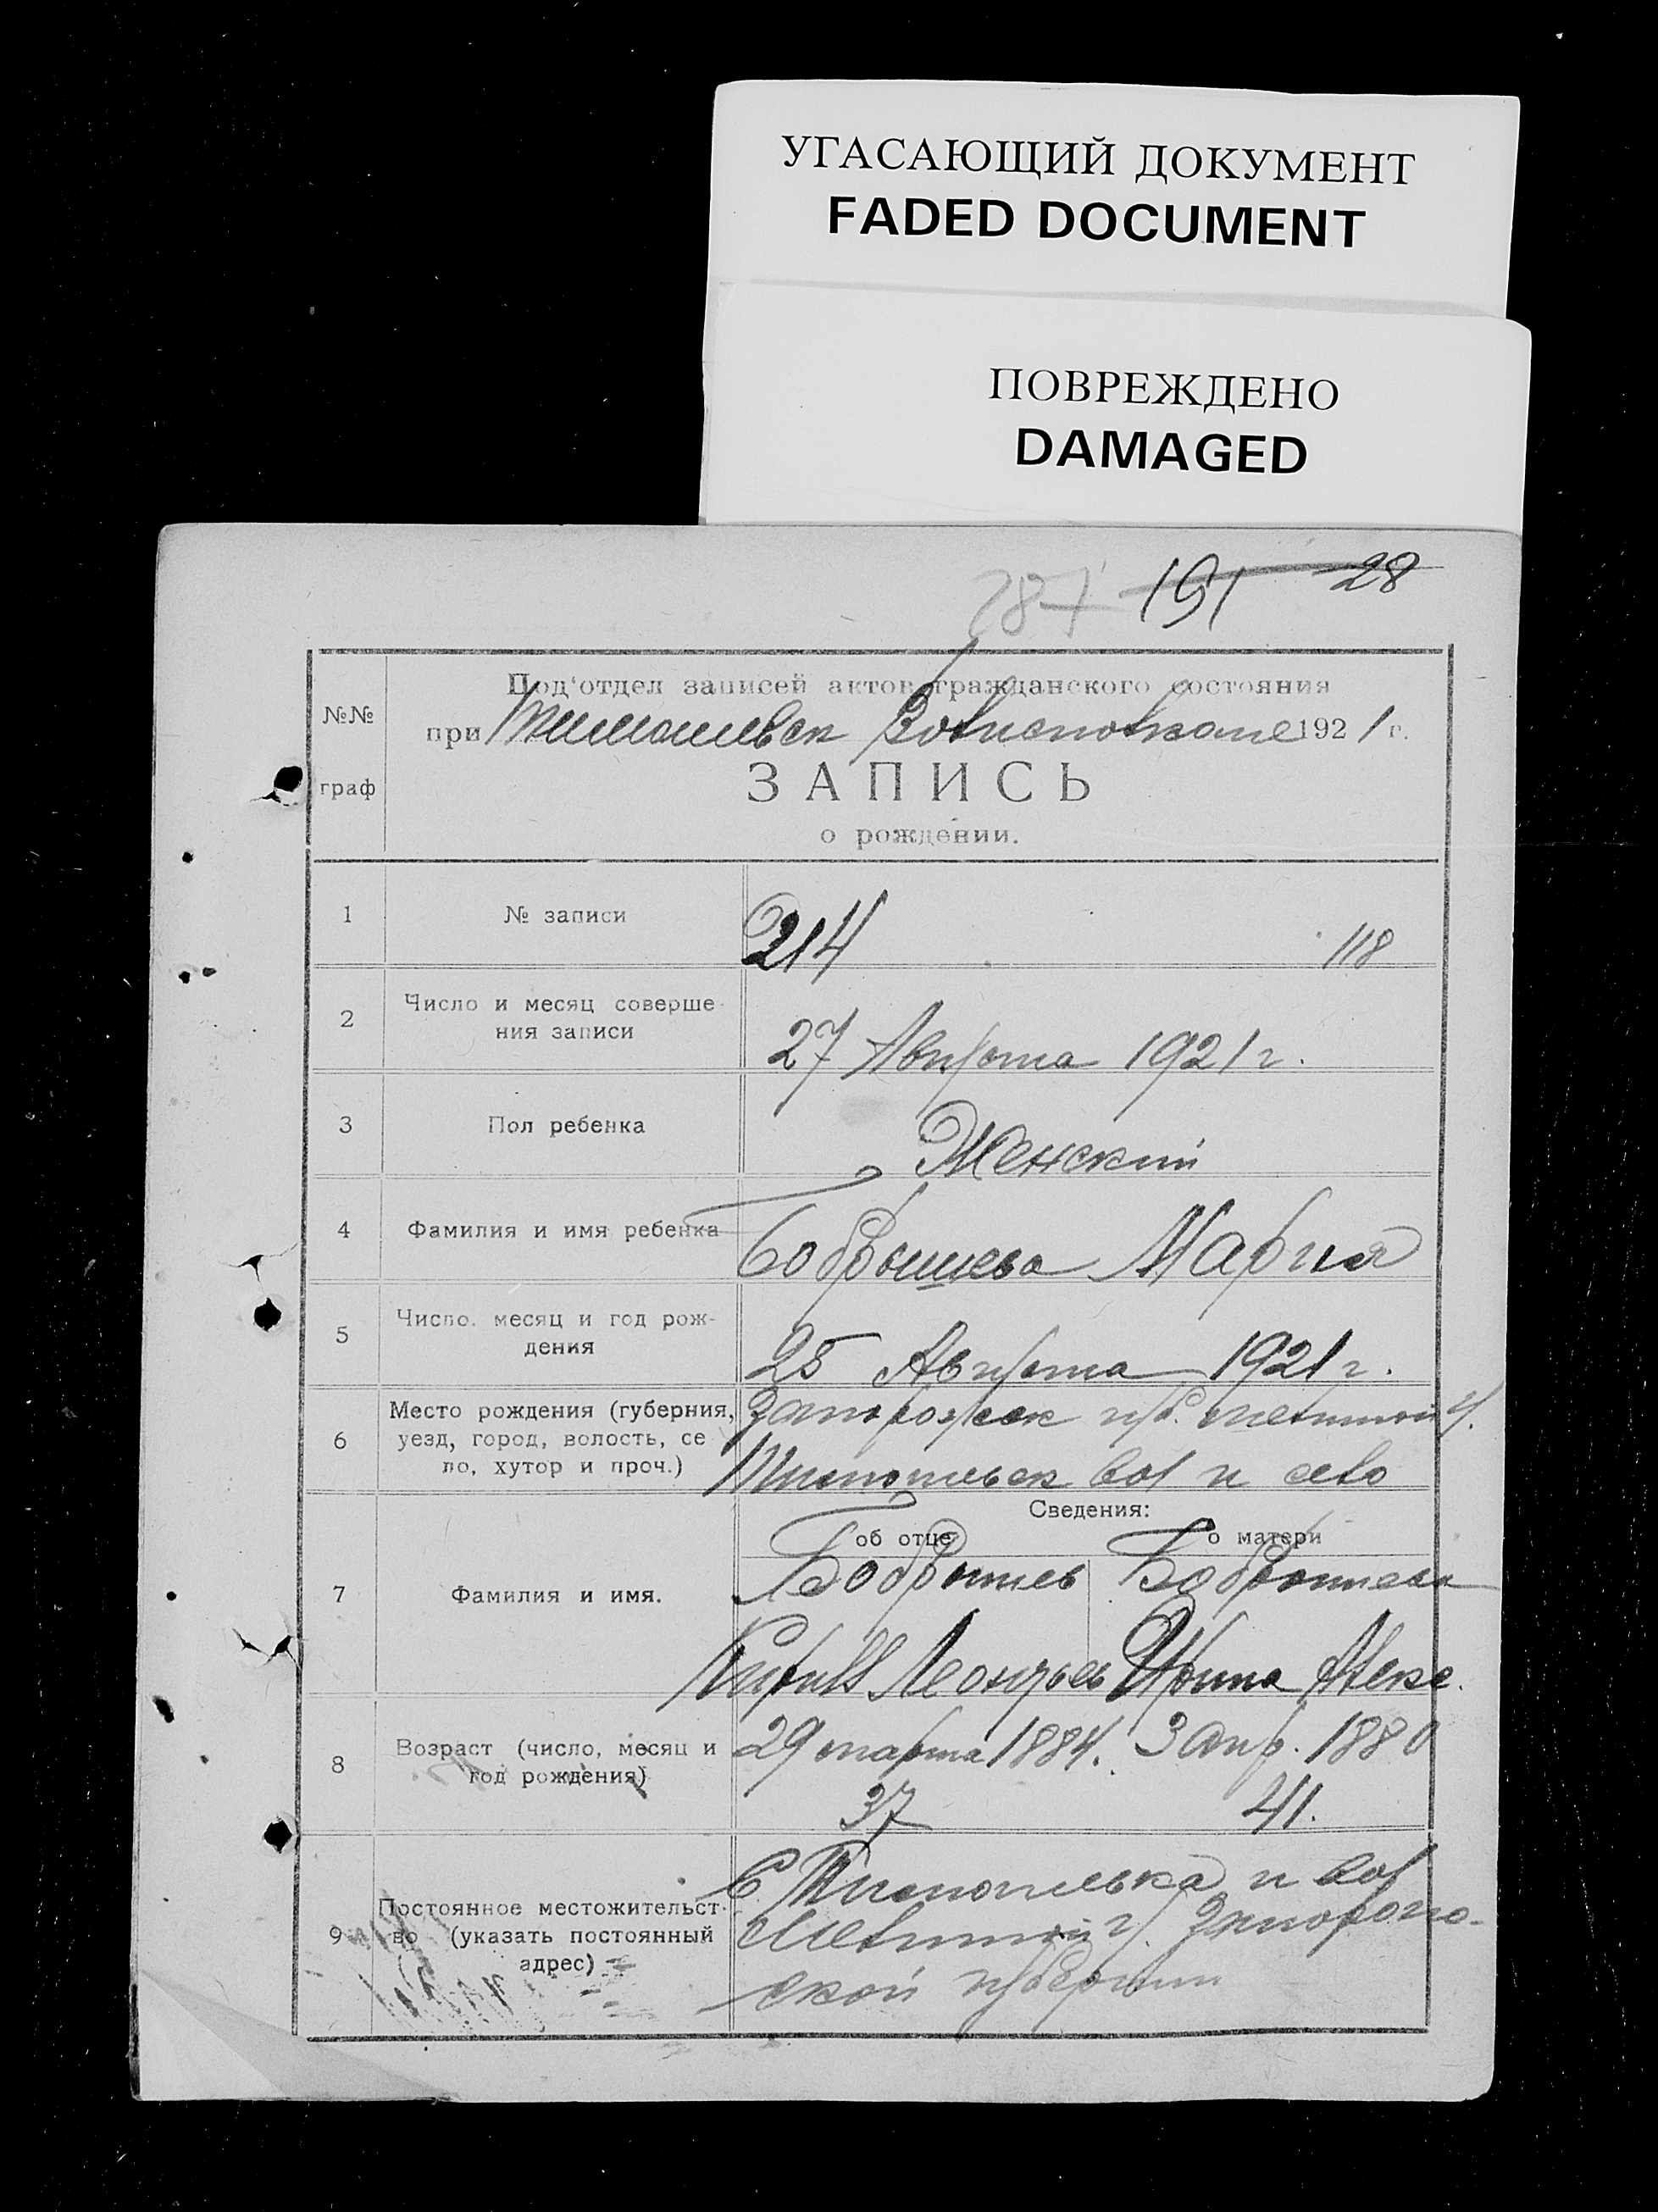 УГАСАЮЩИЙ ДОКУМЕНТ
FADED DOCUMENT
ПОВРЕЖДЕНО
DAMAGED
287 191 28
№№
граф
Под'отдел записей актов гражданского состояния
при 1921 г.
ЗАПИСЬ
о рождении.
1 № записи 214 118
2 Число и месяц соверше-
ния записи 27 Августа 1921 г.
3 Пол ребенка Женский
4 Фамилия и имя ребенка Бобрышева Мария
5 Число, месяц и год рож-
дения 25 Августа 1921 г.
Место рождения (губерния, Запорожск губ.
6 уезд, город, волость, се
ло, хутор и проч.) вол и село
Сведения:
об отце о матери
7 Фамилия и имя. Бобрышев Бобрышева
Кирилл Леонтьев Ирина Алекс.
8 Возраст (число, месяц и 29 марта 1884. 3 апр. 1880
год рождения) 37 41.
9 Постоянное местожительст-
во (указать постоянный
адрес)
С. и вол
Запорож-
ской губернии